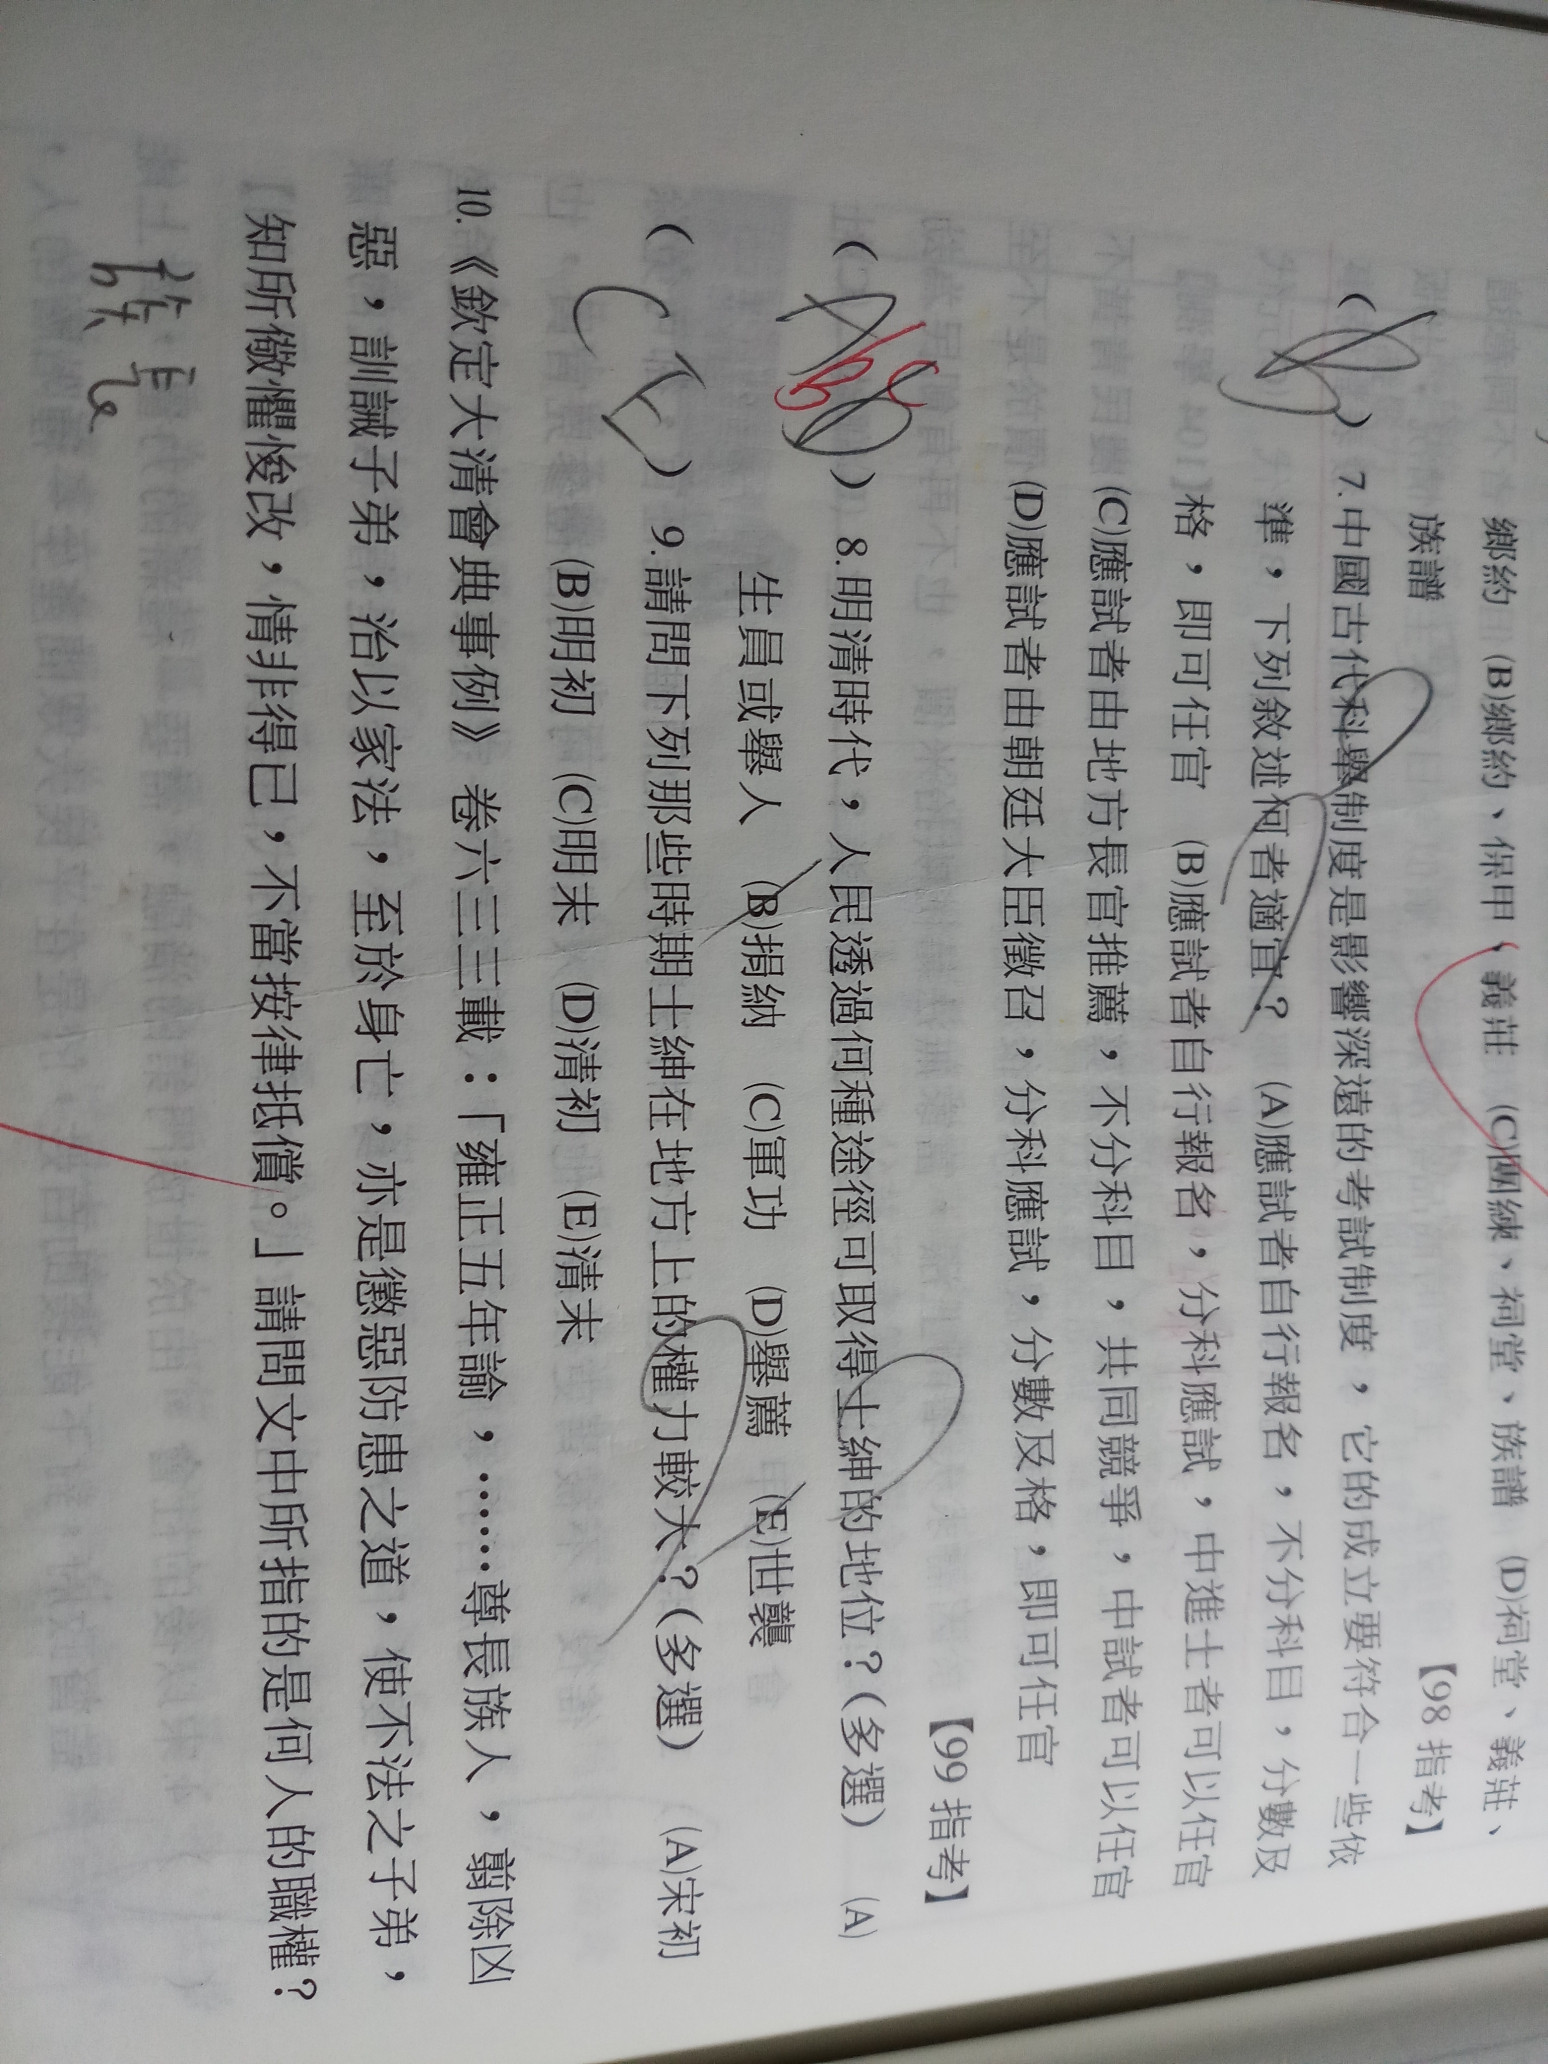 鄉約 (B)鄉約、保甲、義莊 (C)團練、祠堂、族譜 (D)祠堂、義莊、
族譜 【98 指考】
( B ) 7.中國古代科舉制度是影響深遠的考試制度，它的成立要符合一些依
準，下列敘述何者適宜？ (A)應試者自行報名，不分科目，分數及
格，即可任官 (B)應試者自行報名，分科應試，中進士者可以任官
(C)應試者由地方長官推薦，不分科目，共同競爭，中試者可以任官
(D)應試者由朝廷大臣徵召，分科應試，分數及格，即可任官
【99 指考】
( A B C ) 8.明清時代，人民透過何種途徑可取得士紳的地位？(多選) (A)
生員或舉人 (B)捐納 (C)軍功 (D)舉薦 (E)世襲
( C E ) 9.請問下列那些時期士紳在地方上的權力較大？(多選) (A)宋初
(B)明初 (C)明末 (D)清初 (E)清末
10.《欽定大清會典事例》卷六三三載：「雍正五年諭，……尊長族人，翦除凶
惡，訓誡子弟，治以家法，至於身亡，亦是懲惡防患之道，使不法之子弟，
知所儆懼悛改，情非得已，不當按律抵償。」請問文中所指的是何人的職權？
族長